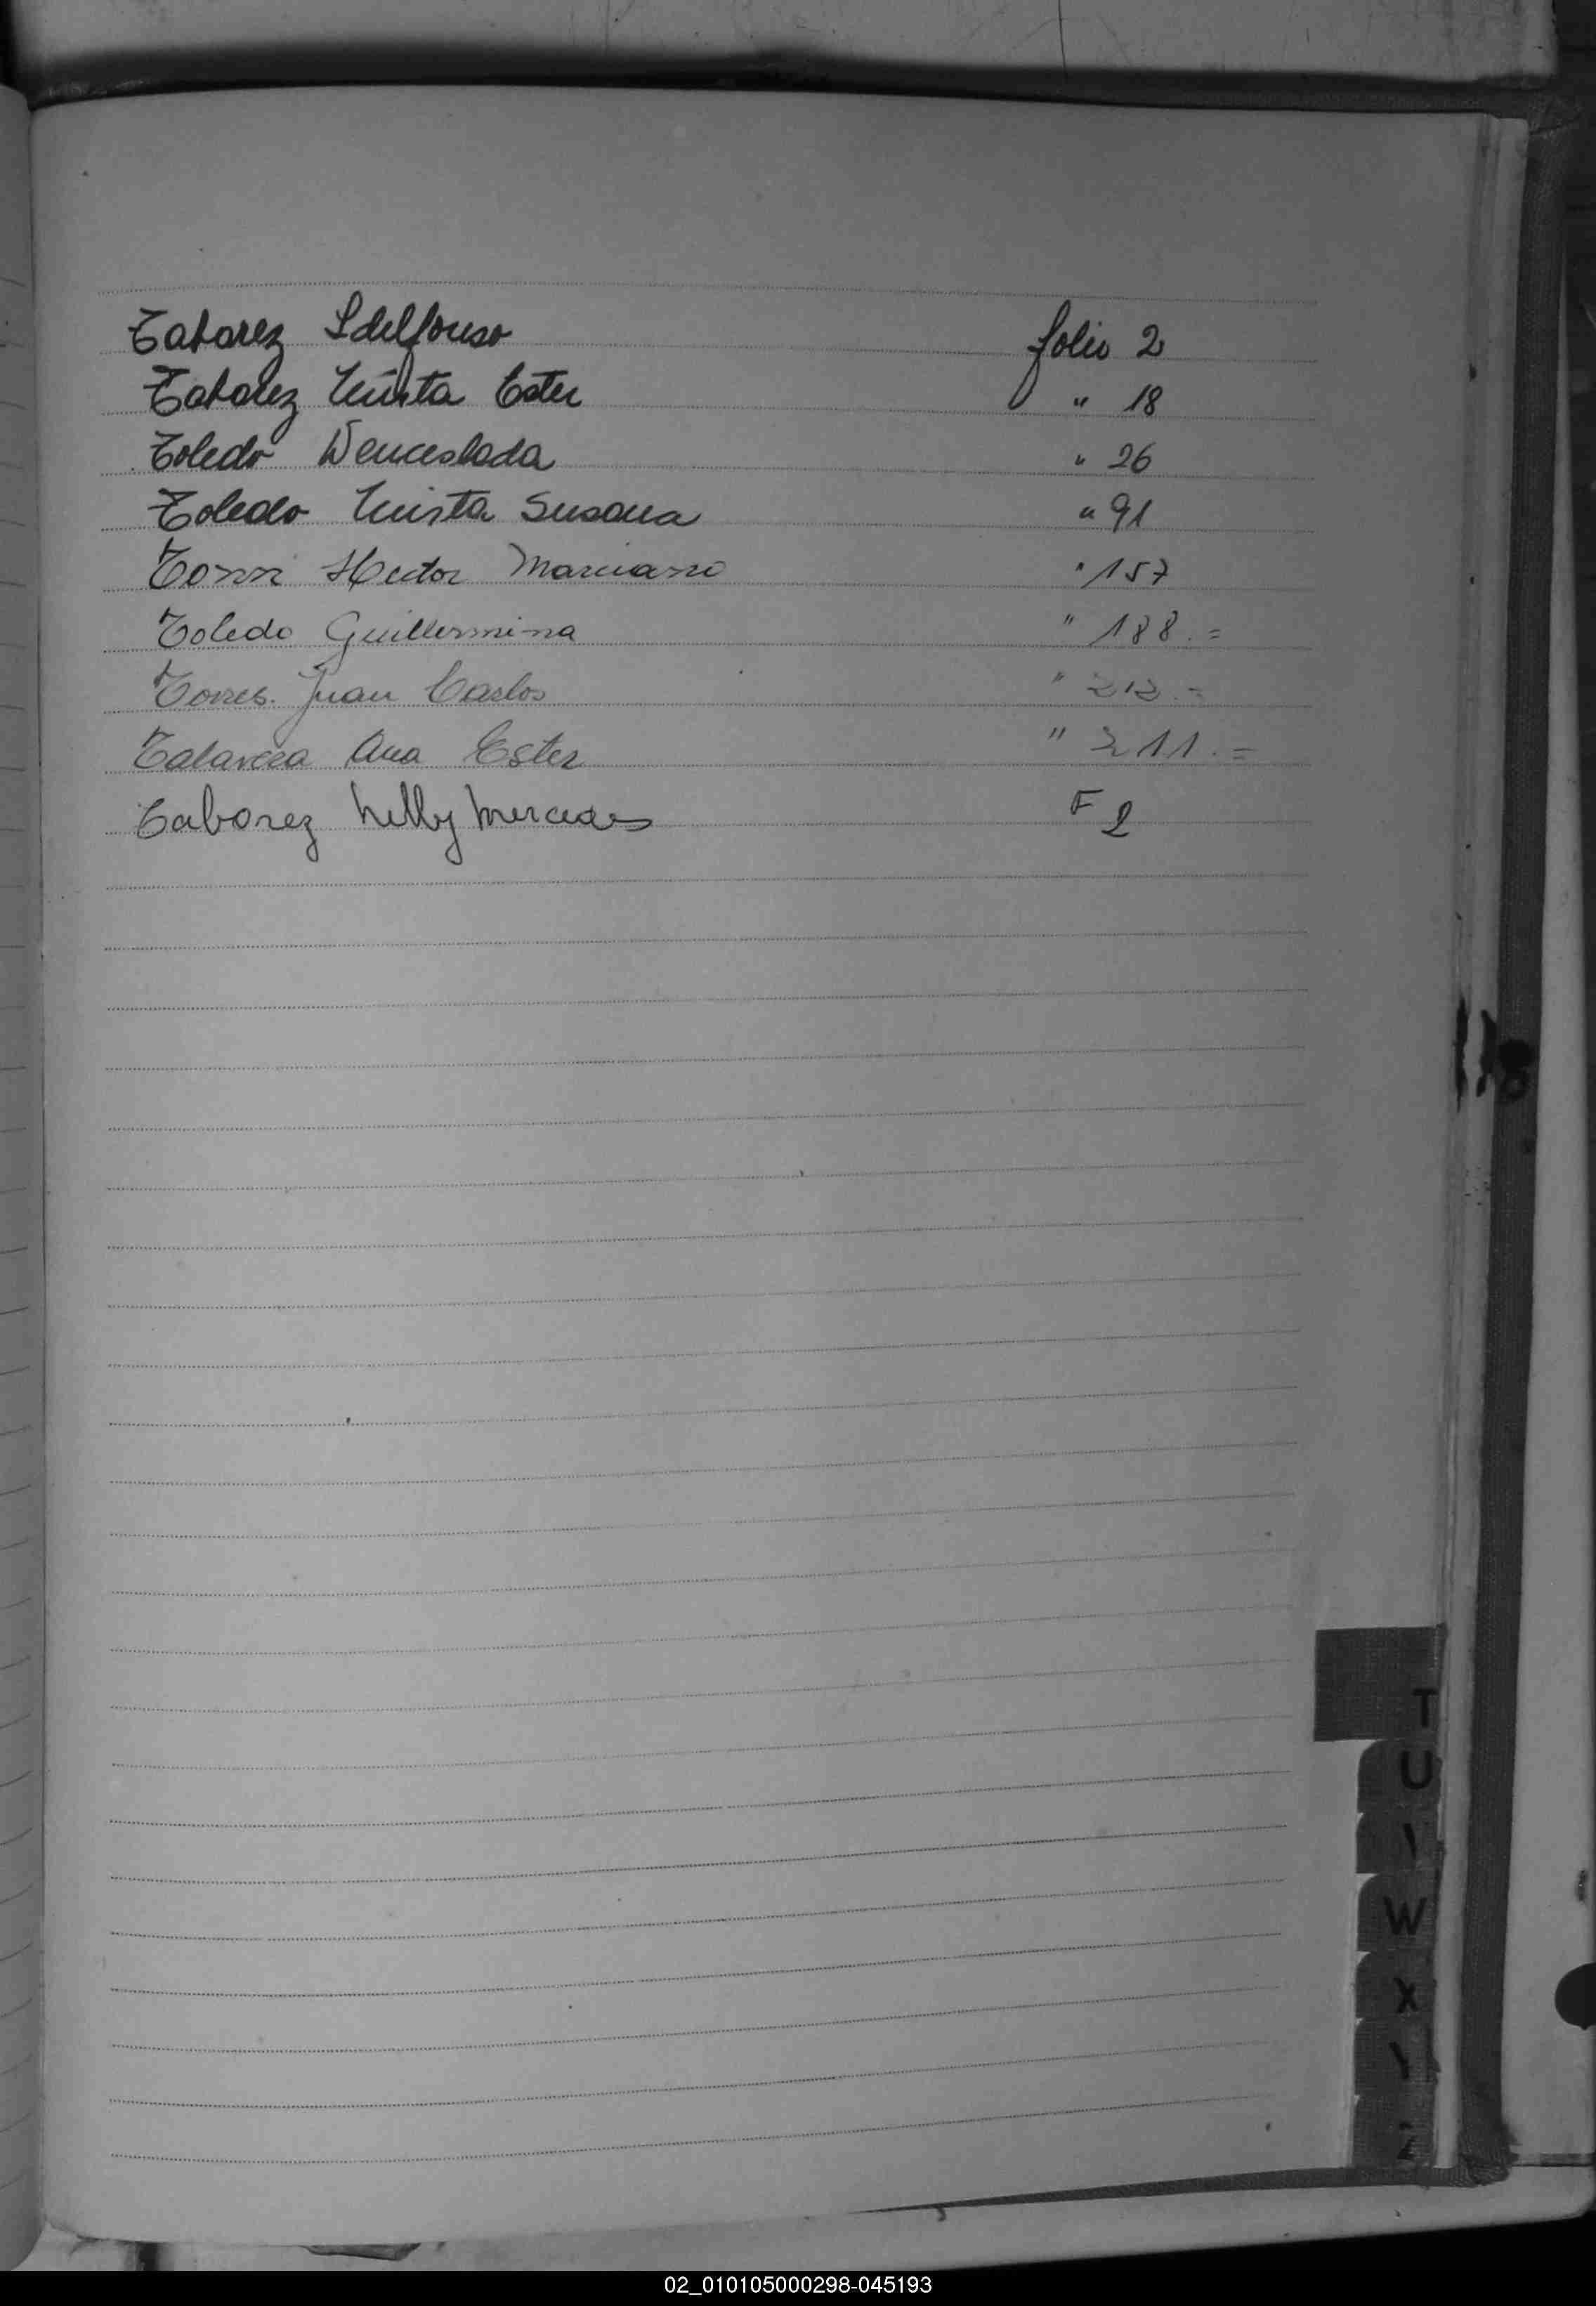 Tabarez Ildelfonso folio 2
Tabarez Ester " 18
Toledo Wenceslada " 26
Toledo Susana " 91
Hector Marciano " 157
Toledo Guillermina " 188.=
Torres. Juan Carlos " 212.=
Talavera Ana Ester " 211.=
Taborez Nelly Mercedes F 2
T
U
W
X
Z
02_010105000298-045193